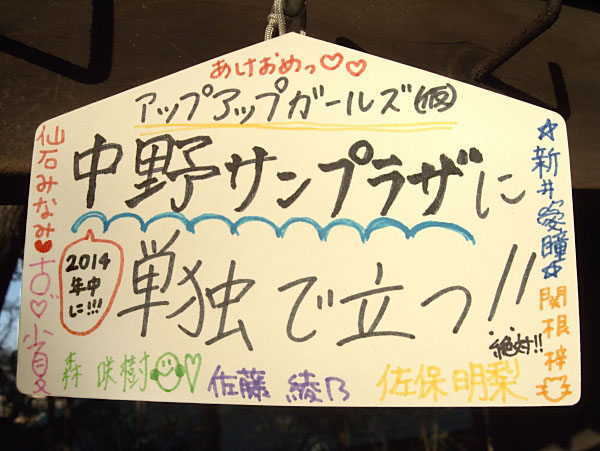 あけおめっ♡♡
アップアップガールズ(仮)
中野サンプラザに
2014
年中
に!!!
単独で立つ!!
絶対!!
仙石みなみ♥
古♡小夏
森 咲樹☺♡
佐藤 綾乃
佐保明梨
☆新井愛瞳☆
関根梓